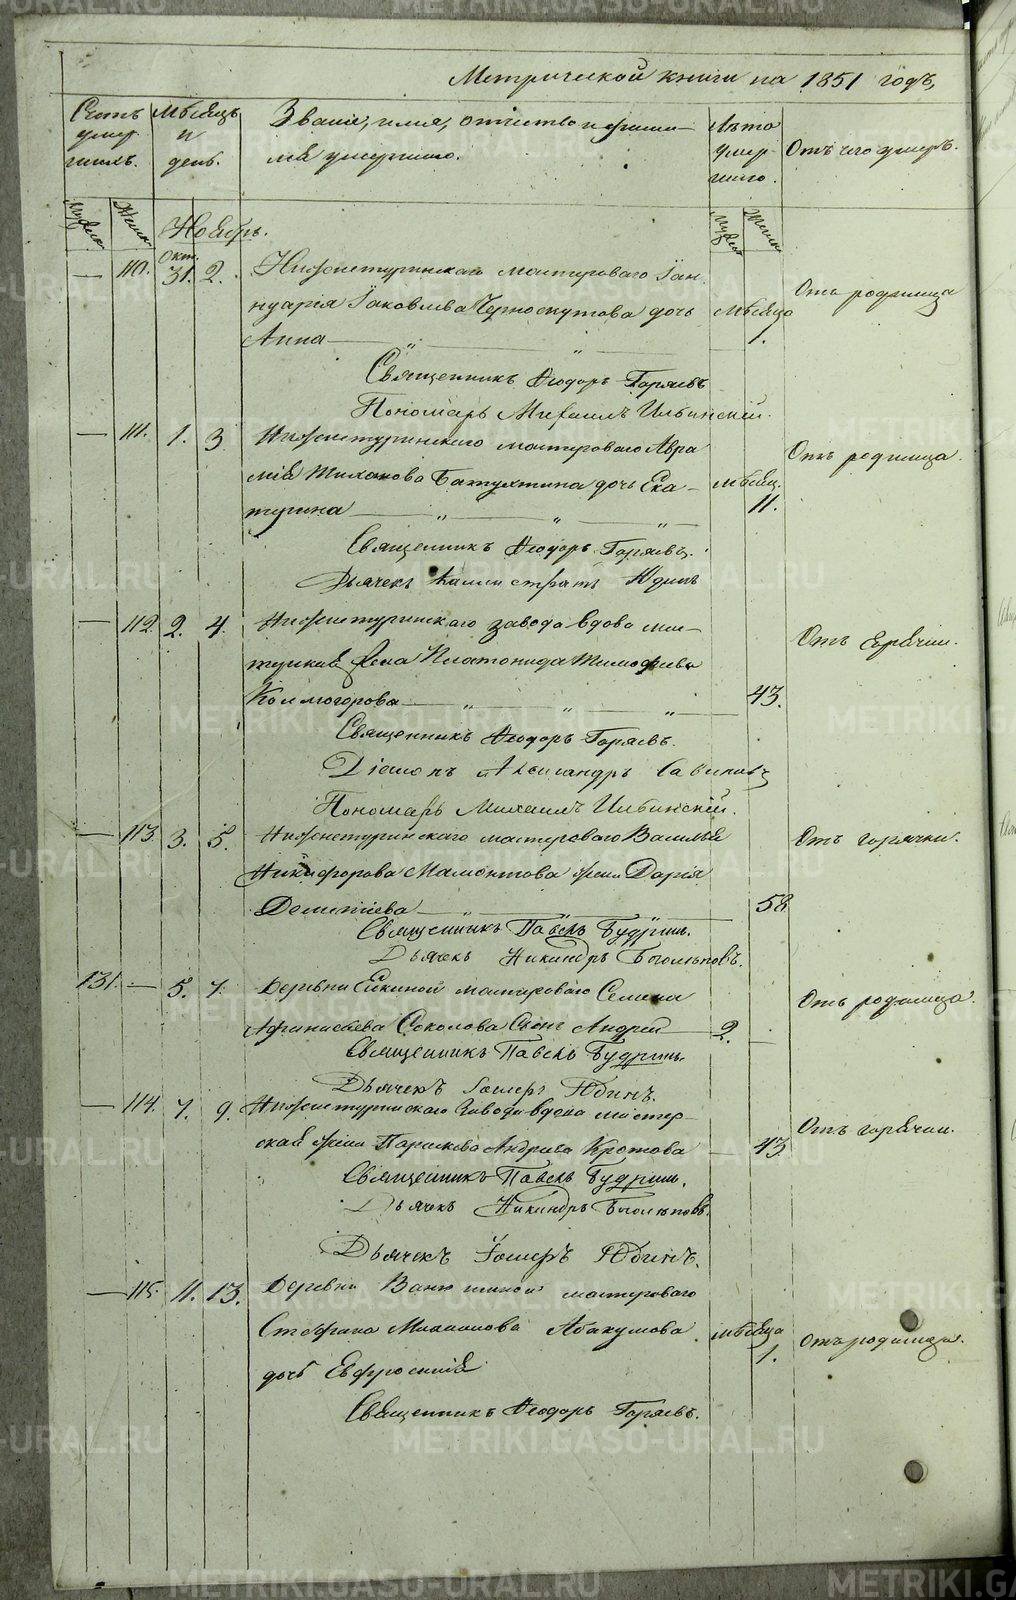 Метрической книги на 1851 годъ,
Счетъ умер-шихъ.
Мѣсяцъ и день.
Званіе, имя, отчество и фами-
лія умершаго.
Лѣта умер-шаго.
Отъ чего умеръ.
Мужеск. Женск.
Ноябрь.
Мужеск. Женск.
— 110. Окт. 31. 2. Нижнетуринскаго мастероваго Іан-
нуарія Іаковлева Черноскутова дочь мѣсяца Отъ родимца
Анна — 1.
Священникъ Ѳеодоръ Горяевъ
Пономарь Михаилъ Ильинскій.
— 111. 1. 3 Нижнетуринскаго мастероваго Авра
мія Тиханова Батухтина дочь Ека- мѣсяц. Отъ родимца.
терина — 11.
Священникъ Ѳеодоръ Горяевъ.
Дьячекъ Каллистратъ Юдинъ
— 112. 2. 4. Нижнетуринскаго завода вдова мас-
терская жена Платонида Тимофѣева Отъ горячки.
Колмогорова — 43.
Священникъ Ѳеодоръ Горяевъ.
Діаконъ Александръ
Пономарь Михаилъ Ильинскій.
— 113. 3. 5. Нижнетуринскаго мастероваго Василья Отъ горячки.
Никифорова Мамонтова жена Дарія
Дементіева — 58
Священникъ Павелъ Будринъ.
Дьячекъ Никандръ Боголѣповъ.
131. — 5. 7. Деревни Елкиной мастероваго Семена Отъ родимца.
Афанасьева Соколова сынъ Андрей — 2. —
Священникъ Павелъ Будринъ.
Дьячекъ Юдинъ.
— 114. 7. 9. Нижнетуринскаго Завода вдова мастер-
ская жена Параскева Андреева Кротова — 43 Отъ горячки.
Священникъ Павелъ Будринъ.
Дьячекъ Никандръ Боголѣповъ.
Дьячекъ Юдинъ.
— 115. 11. 13. Деревни мастероваго
Стефана Абакумова мѣсяца Отъ родимца.
дочь Евфросинія 1.
Священникъ Ѳеодоръ Горяевъ.
METRIKI.GASO-URAL.RU